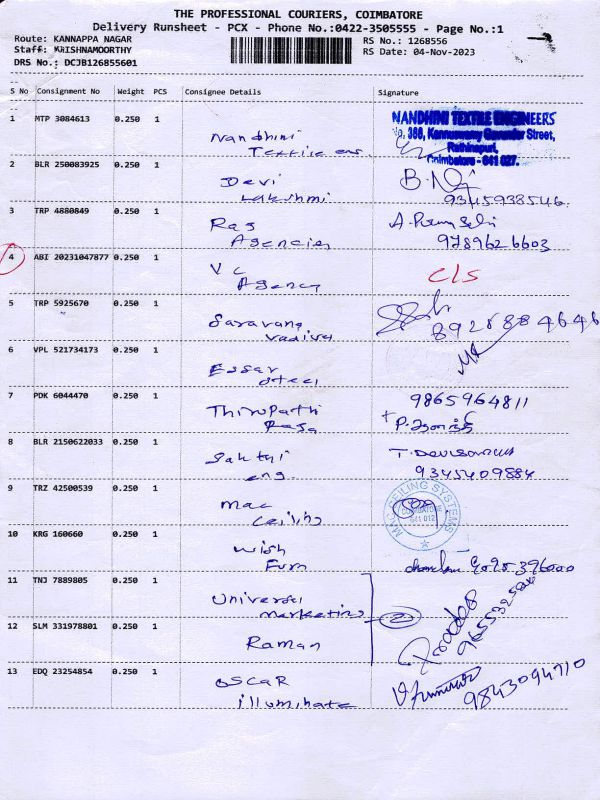 THE PROFESSIONAL COURIERS, COIMBATORE
Delivery Runsheet - PCX - Phone No.:0422-3505555 - Page No.:1
Route: KANNAPPA NAGAR
RS No.: 1268556
Staff: KRISHNAMOORTHY
RS Date: 04-Nov-2023
DRS No.: DCJB126855601
S No Consignment No Weight PCS Consignee Details Signature
1 MTP 3084613 0.250 1 Nandhini
NANDHINI TEXTILE ENGINEERS
Textile
Street,
Rathinapuri,
Coimbatore - 641 027.
2 BLR 250083925 0.250 1 Devi
Lakshmi
9345938546
3 TRP 4880849 0.250 1 Raj
Agencies
9789626603
4 ABI 20231047877 0.250 1 V C
Agency
cls
5 TRP 5925670 0.250 1 Saravana
Vadivel
8928884646
6 VPL 521734173 0.250 1 Essar
steel
7 PDK 6044470 0.250 1 Thirupathi
9865964811
8 BLR 2150622033 0.250 1 Sakthi
eng
9345409884
9 TRZ 42500539 0.250 1 Mac
Ceiling
MAC CEILING SYSTEMS
COIMBATORE
641 012
10 KRG 160660 0.250 1 Wish
Furn
11 TNJ 7889805 0.250 1 Universal
marketing
2
12 SLM 331978801 0.250 1 Raman
13 EDQ 23254854 0.250 1 OSCAR
illuminate
9843094710